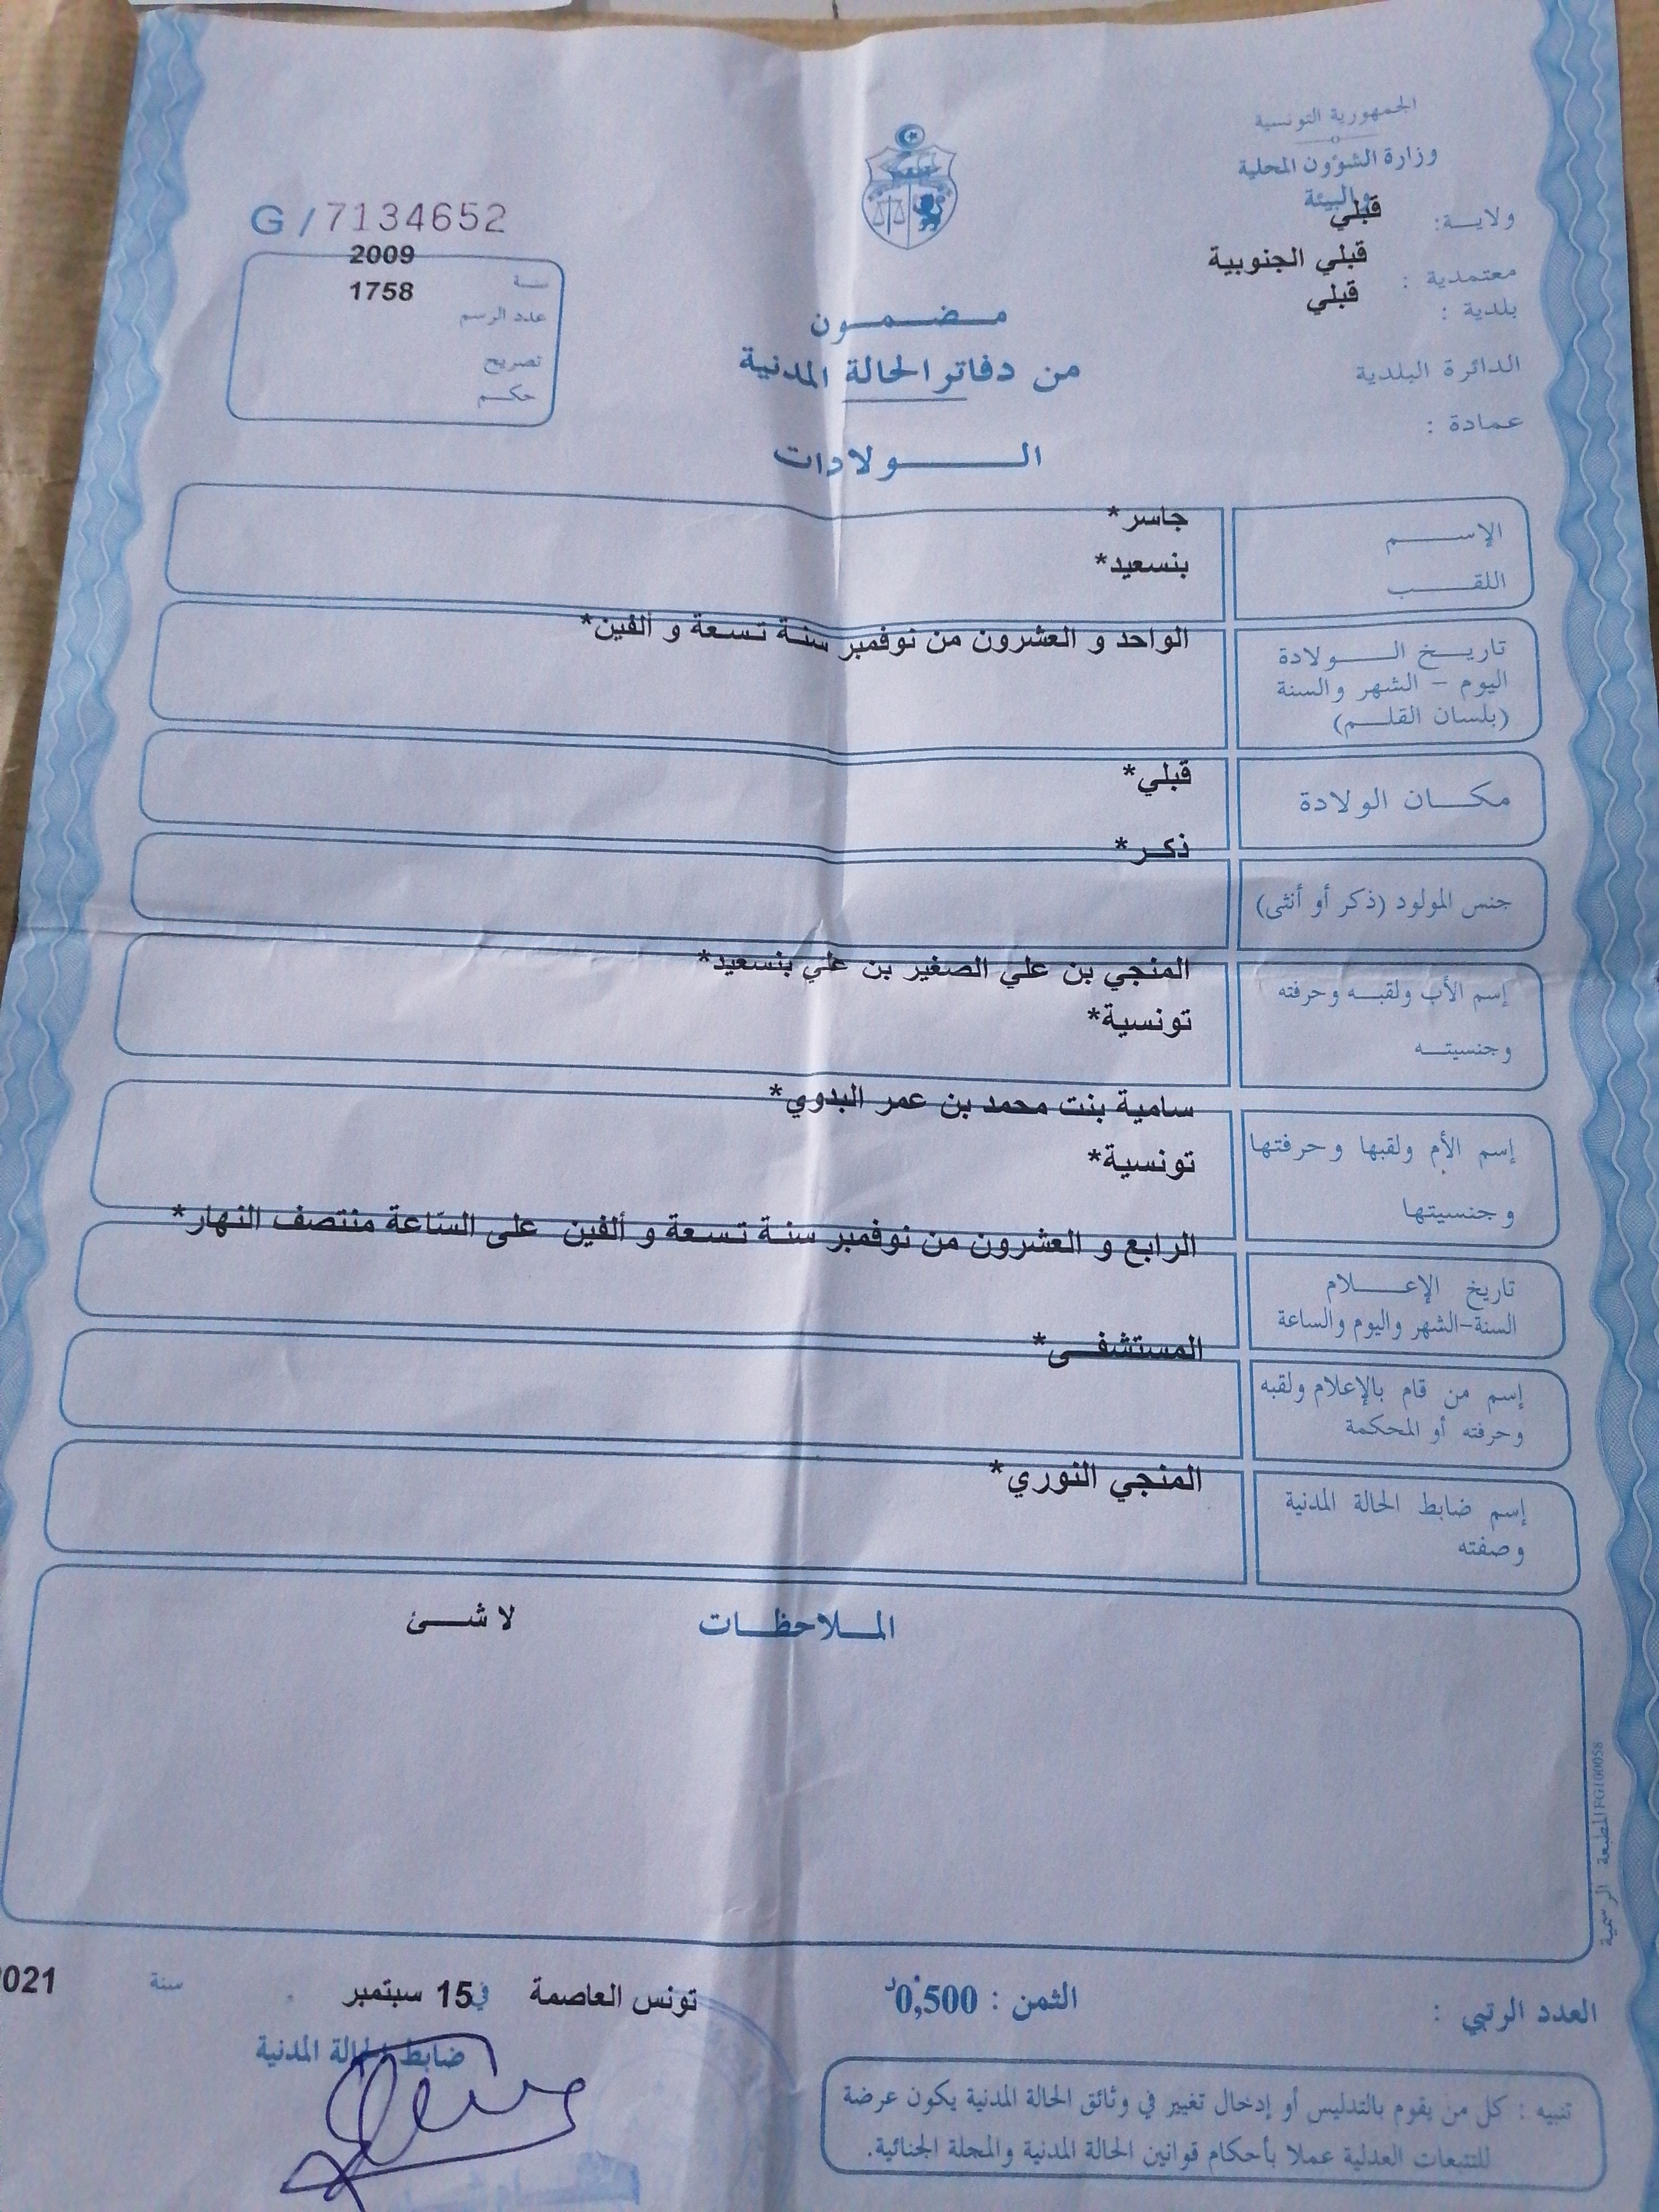 الجمهورية التونسية
وزارة الشؤون المحلية
والبيئة
ولايـــة: قبلي
معتمدية : قبلي الجنوبية
بلدية : قبلي
الدائرة البلدية
عمادة :
G / 7134652
سنة 2009
عدد الرسم 1758
تصريح
حكم
مضمون
من دفاتر الحالة المدنية
الولادات
الإسم جاسر*
اللقب بنسعيد*
تاريخ الولادة الواحد و العشرون من نوفمبر سنة تسعة و ألفين*
اليوم – الشهر والسنة
(بلسان القلم)
مكان الولادة قبلي*
جنس المولود (ذكر أو أنثى) ذكر*
إسم الأب ولقبه وحرفته المنجي بن علي الصغير بن علي بنسعيد*
وجنسيته تونسية*
إسم الأم ولقبها وحرفتها سامية بنت محمد بن عمر البدوي*
وجنسيتها تونسية*
تاريخ الإعلام الرابع و العشرون من نوفمبر سنة تسعة و ألفين على السّاعة منتصف النهار*
السنة-الشهر واليوم والساعة
إسم من قام بالإعلام ولقبه المستشفى*
وحرفته أو المحكمة
إسم ضابط الحالة المدنية المنجي النوري*
وصفته
الملاحظات لا شئ
المطبعة الرسمية FG100058
العدد الرتبي :
الثمن : 0,500د
تونس العاصمة في 15 سبتمبر سنة 021
ضابط الحالة المدنية
تنبيه : كل من يقوم بالتدليس أو إدخال تغيير في وثائق الحالة المدنية يكون عرضة
للتتبعات العدلية عملا بأحكام قوانين الحالة المدنية والمجلة الجنائية.